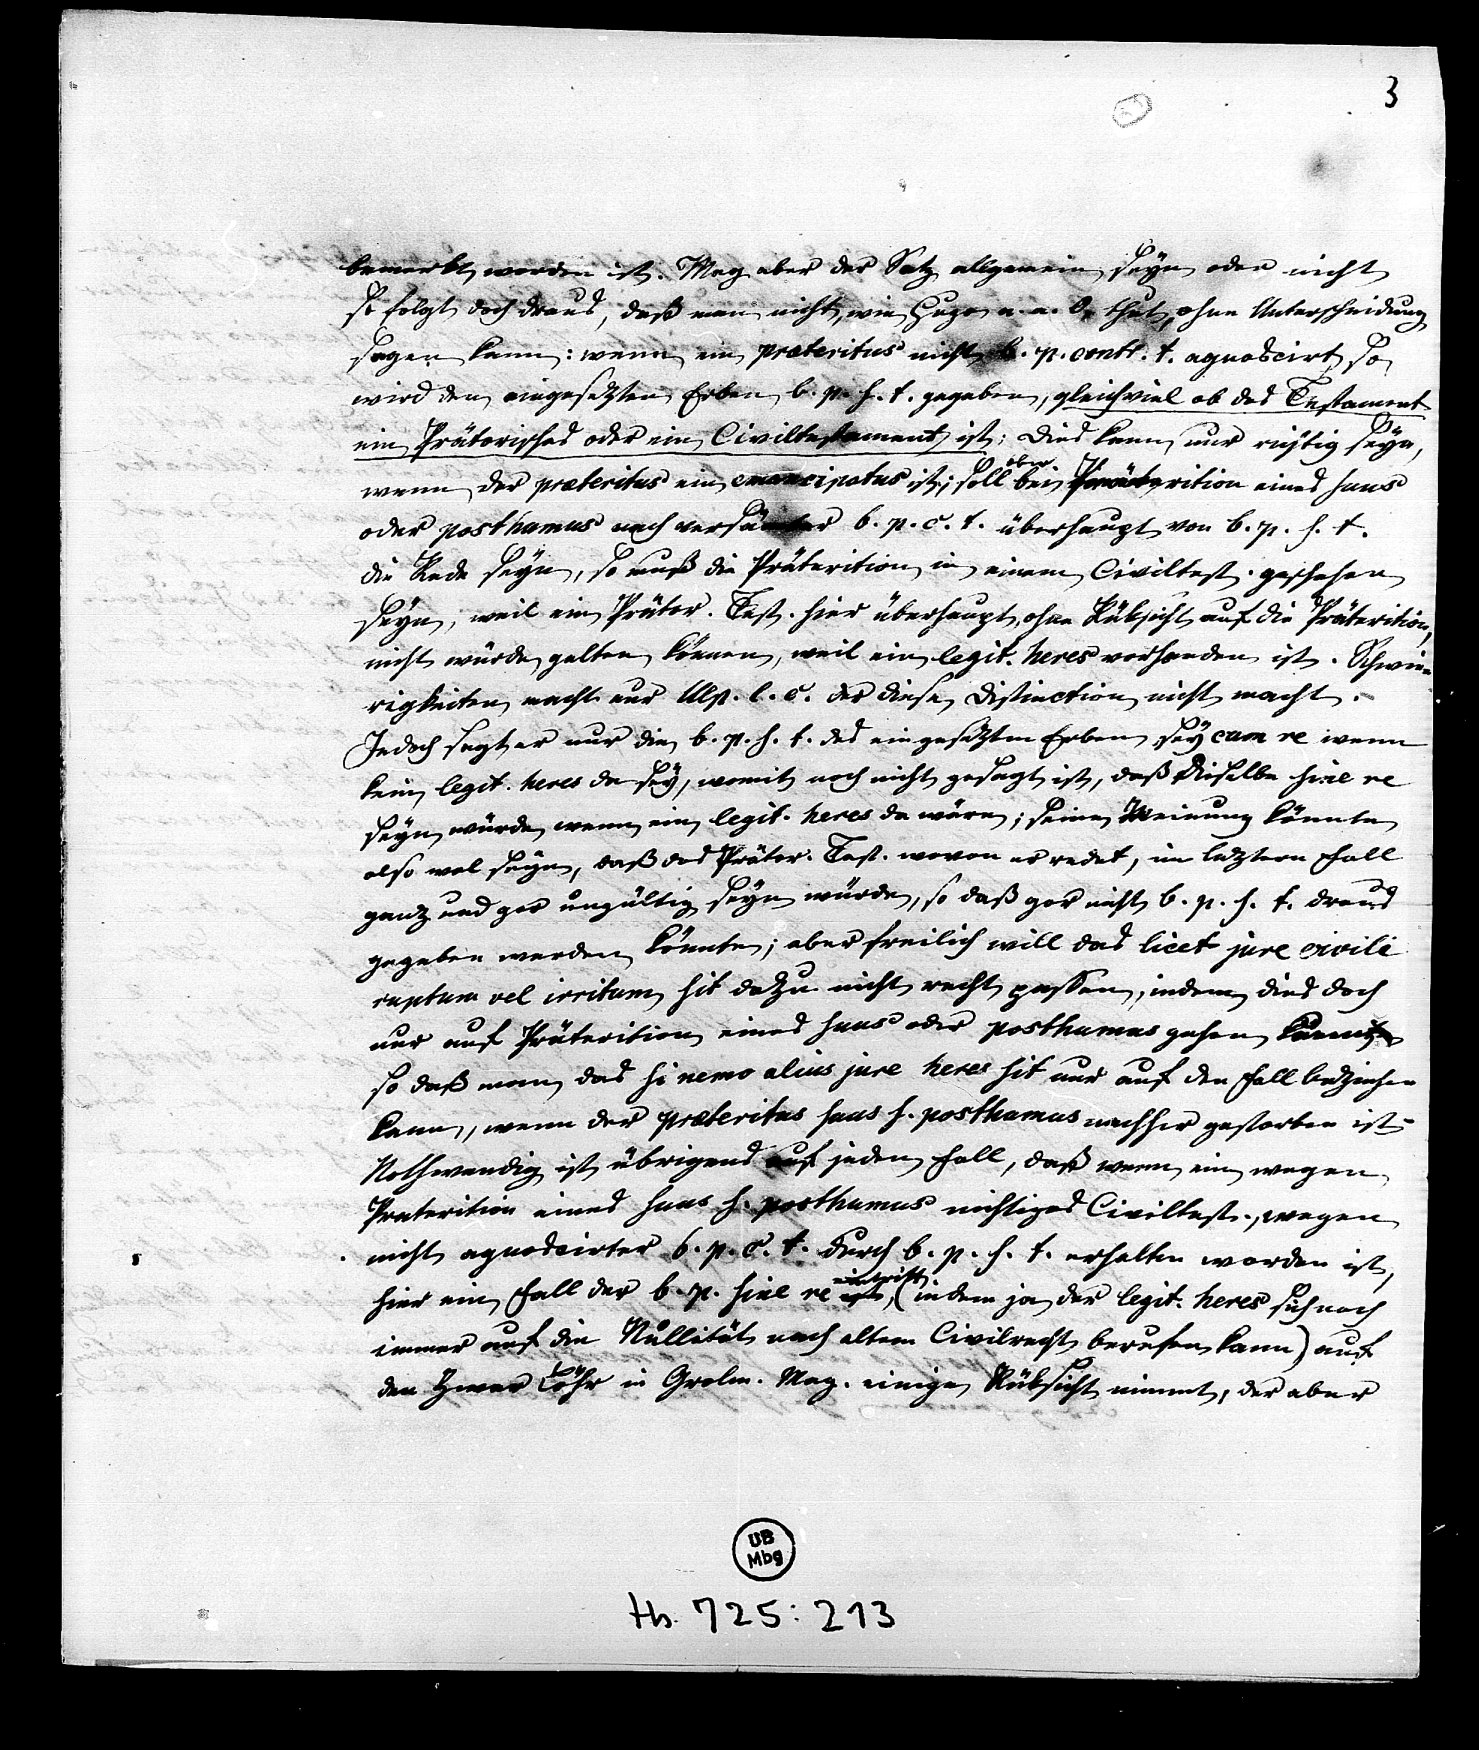 3
bemerkt worden ist. Mag aber der Satz allgemein seyn oder nicht
so folgt doch draus, daß man nicht, wie Hugo a. a. O. thut, ohne Unterscheidung
sagen kann: wenn ein praeteritus nicht b. p. contr. t. agnoscirt, so
wird den eingesetzten Erben b. p. s. t. gegeben, gleichviel ob das Testament
ein Prätorisches oder ein Civiltestament ist; dies kann nur richtig seyn,
wenn der praeteritus ein emancipatus ist; soll aber bei Präterition eines suus
oder posthumus nach versäumter b. p. c. t. überhaupt von b. p. s. t.
die Rede seyn, so muß die Präterition in einem Civiltest. geschehen
seyn, weil ein Prätor. Test. hier überhaupt, ohne Rüksicht auf die Präterition,
nicht würde gelten können, weil ein legit. heres vorhanden ist. Schwie-
rigkeiten macht nur Ulp. l. c. der diese Distinction nicht macht.
Jedoch sagt er nur die b. p. s. t. des eingesetzten Erben sey cum re wenn
kein legit. heres da sey, womit noch nicht gesagt ist, daß dieselbe sine re
seyn würde, wenn ein legit. heres da wäre; seine Meinung könnte
also wol seyn, daß das Prätor. Test. wovon er redet, im leztern Fall
ganz und gar ungültig seyn würde, so daß gar nicht b. p. s. t. draus
gegeben werden könnte; aber freilich will das licet jure civili
ruptum vel irritum sit dazu nicht recht passen, indem dies doch
nur auf Präterition eines suus oder posthumus gehen könnte
so daß man das si nemo alius jure heres sit nur auf den Fall beziehen
kann, wenn der praeteritus suus s. posthumus nachher gestorben ist.
Nothwendig ist übrigens auf jeden Fall, daß wenn ein wegen
Praeterition eines suus s. posthumus nichtiges Civiltest., wegen
nicht agnoscirter b. p. c. t. durch b. p. s. t. erhalten worden ist,
hier ein Fall der b. p. sine re eintritt, (indem ja der legit. heres sich noch
immer auf die Nullität nach altem Civilrecht berufen kann) auf
den zwar Löhr in Grolm. Mag. einige Rüksicht nimmt, der aber
UB
Mbg
Hs. 725: 213